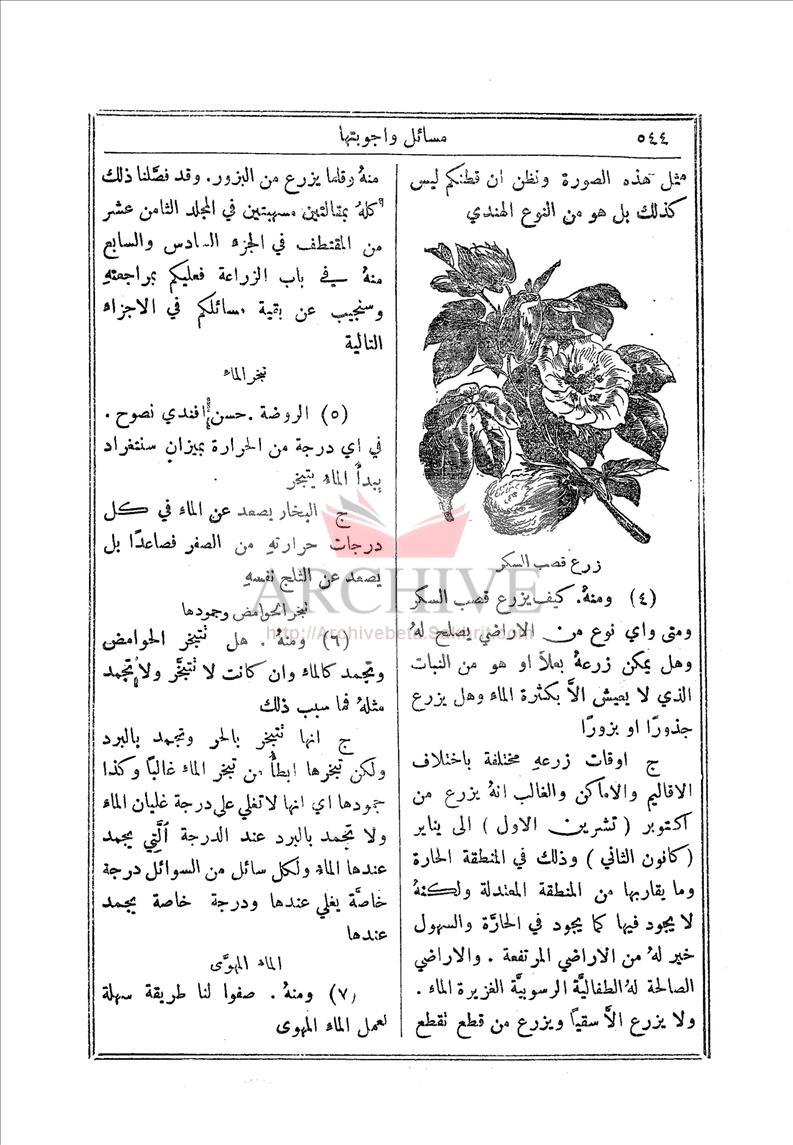 ٥٤٤
مسائل واجوبتها
مثل هذه الصورة ونظن ان قطنكم ليس
كذلك بل هو من النوع الهندي
زرع قصب السكر
(٤) ومنهُ. كيف يزرع قصب السكر
ومتى واي نوع من الاراضي يصلح لهُ
وهل يمكن زرعهُ بعلاً او هو من النبات
الذي لا يعيش الاَّ بكثرة الماء وهل يزرع
جذورًا او بزورًا
ج اوقات زرعهِ مختلفة باختلاف
الاقاليم والاماكن والغالب انهُ يزرع من
اكتوبر (تشرين الاول) الى يناير
(كانون الثاني) وذلك في المنطقة الحارة
وما يقاربها من المنطقة المعتدلة ولكنهُ
لا يجود فيها كما يجود في الحارَّة والسهول
خير لهُ من الاراضي المرتفعة. والاراضي
الصالحة لهُ الطفاليَّة الرسوبيَّة الغزيرة الماء.
ولا يزرع الاَّ سقيًا ويزرع من قطع تقطع
منهُ وقلما يزرع من البزور. وقد فصَّلنا ذلك
كلهُ بمقالتين مسهبتين في المجلد الثامن عشر
من المقتطف في الجزء السادس والسابع
منهُ في باب الزراعة فعليكم بمراجعتهِ
وسنجيب عن بقية مسائلكم في الاجزاء
التالية
تبخر الماء
(٥) الروضة. حسن افندي نصوح.
في اي درجة من الحرارة بميزان سنتغراد
يبدأُ الماء يتبخر
ج البخار يصعد عن الماء في كل
درجات حرارتهِ من الصفر فصاعدًا بل
يصعد عن الثلج نفسهِ
تبخر الحوامض وجمودها
(٦) ومنهُ. هل تتبخر الحوامض
وتجمد كالماء وان كانت لا تتبخَّر ولا تجمد
مثلهُ فما سبب ذلك
ج انها تتبخر بالحر وتجمد بالبرد
ولكن تبخرها ابطأُ من تبخر الماء غالبًا وكذا
جمودها اي انها لا تغلي على درجة غليان الماء
ولا تجمد بالبرد عند الدرجة الَّتي يجمد
عندها الماء ولكل سائل من السوائل درجة
خاصَّة يغلي عندها ودرجة خاصة يجمد
عندها
الماء المهوَّى
(٧) ومنهُ. صفوا لنا طريقة سهلة
لعمل الماء المهوى
ARCHIVE
http://Archivebeta.Sakhrit.com